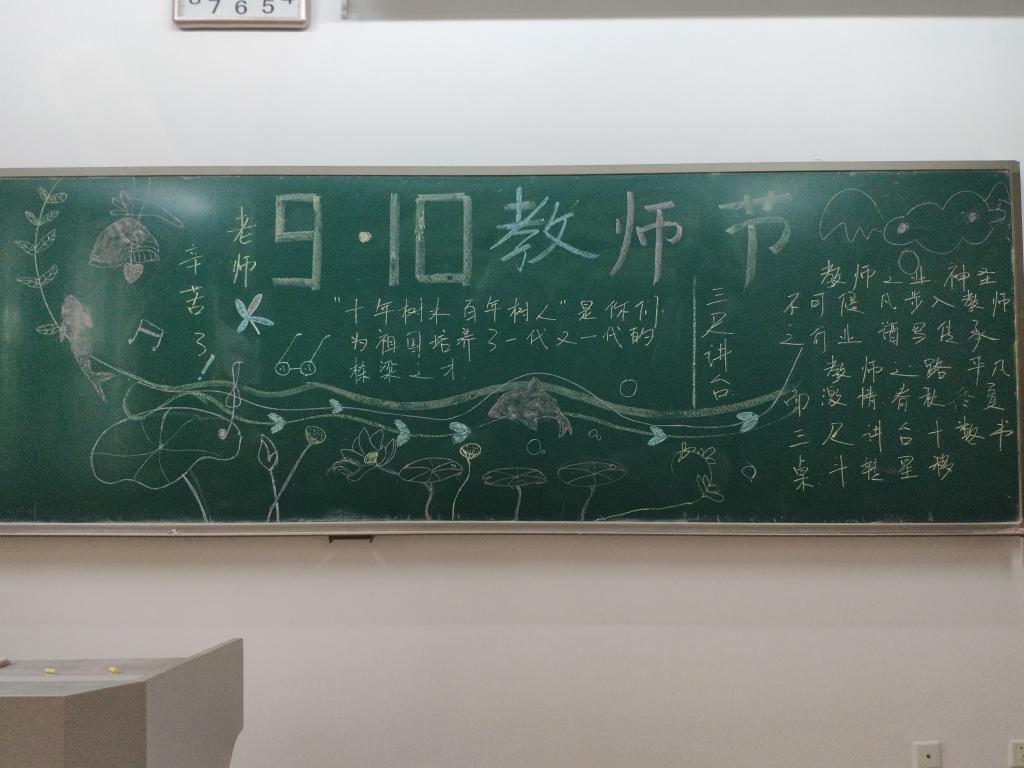 7 6 5 4
老师
辛苦了
9·10教师节
"十年树木百年树人"是你们
为祖国培养了一代又一代的
栋梁之才
三尺讲台
教师之业神圣
不可侵 凡步入教师
之行业 谱写传承
教师之路 平凡
而漫 情育秋冬夏
三尺讲台十数书
桌斗转星移